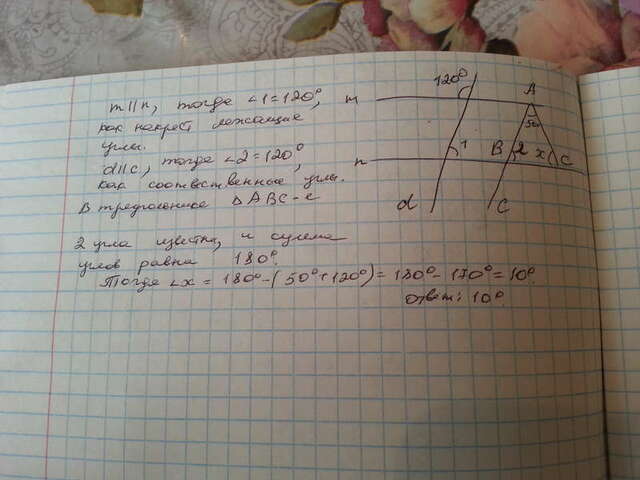 m||n, тогда ∠1=120°,
как накрест лежащие
углы.
d||c, тогда ∠2=120°,
как соответственные углы.
В треугольнике ΔABC-е
2 угла известны, и сумма
углов равна 180°.
Тогда ∠x = 180°-(50°+120°)=180°-170°=10°.
Ответ: 10°.
120°
m
A
50
n
1
B
2
x
C
d
C